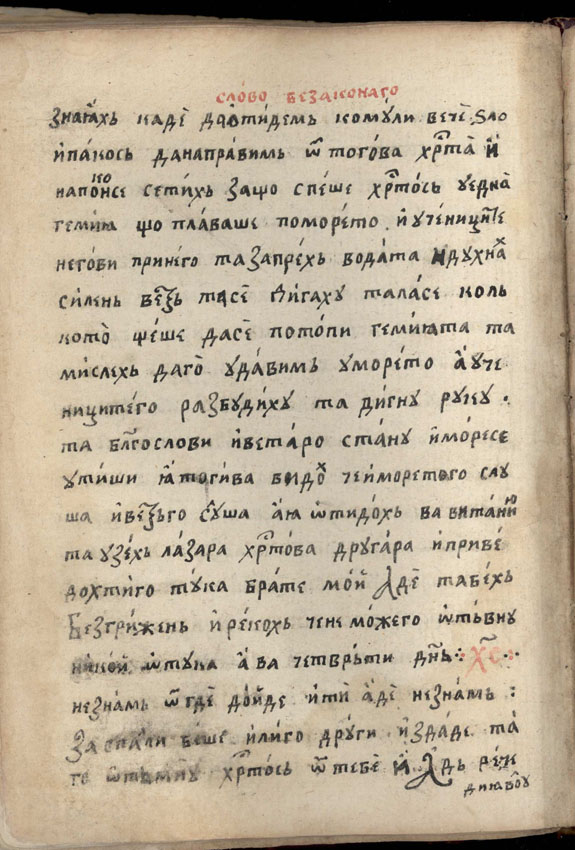 слово безаконаго
знаꙗ́хь каде̏ до́тидемь кому́ли вече̏ ѕло
и҆па́кось данапра́вимь ѿ тогова хрⷭ҇та̀ и҆
напо́нсе сети́хь защо спе́ше хрⷭ҇то́сь у една̀
геми́ꙗ що пла́ваше поморе́то. и҆ у҆ че́ници́те
него́ви при него та запре́хь вода́та и духна̀
си́лень ве́трь та се ди́гаху таласе коль
кото̀ ще́ше дасе пото́пи геми́ꙗта та
ми́слехь даго̀ уда́вимь уморе́то а҆ уче
ници́те го разбуди́ху та ди́гну руку .
та блгⷭ҇ослови и҆ ветаро стану и҆ море се
ути́ши и҆ а҆ тоги́ва видо́ⷯ че и҆ море то го слу
ша и҆ ве́трь го слу́ша а҆ꙗ ѿтидо́хь ва вита́нию
та узе́хь ла́зара хрⷭ҇то́ва друга́ра и҆ приве́
дохь ти го ту́ка бра́те мо́й а҆́де та бе́хь
безгри́жень и҆ реко́хь че не мо́же го ѿте́вну
ни́кой ѿ ту́ка а҆ ва четврьти днь : хⷭ҇с :
не зна́мь ѿ где̏ до́йде и҆ти́ а҆́де не зна́мь :
заспа́ли бе́ше и҆ли го дру́ги и҆зда́де та̀
го ѿтѐмну хрⷭ҇то́сь ѿ тебѐ и҆ а҆дь ре́че
диꙗ́волу